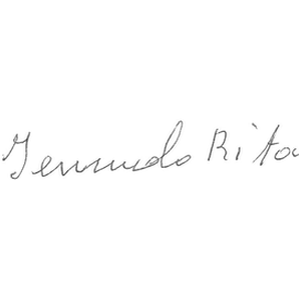 Gennudo Rita